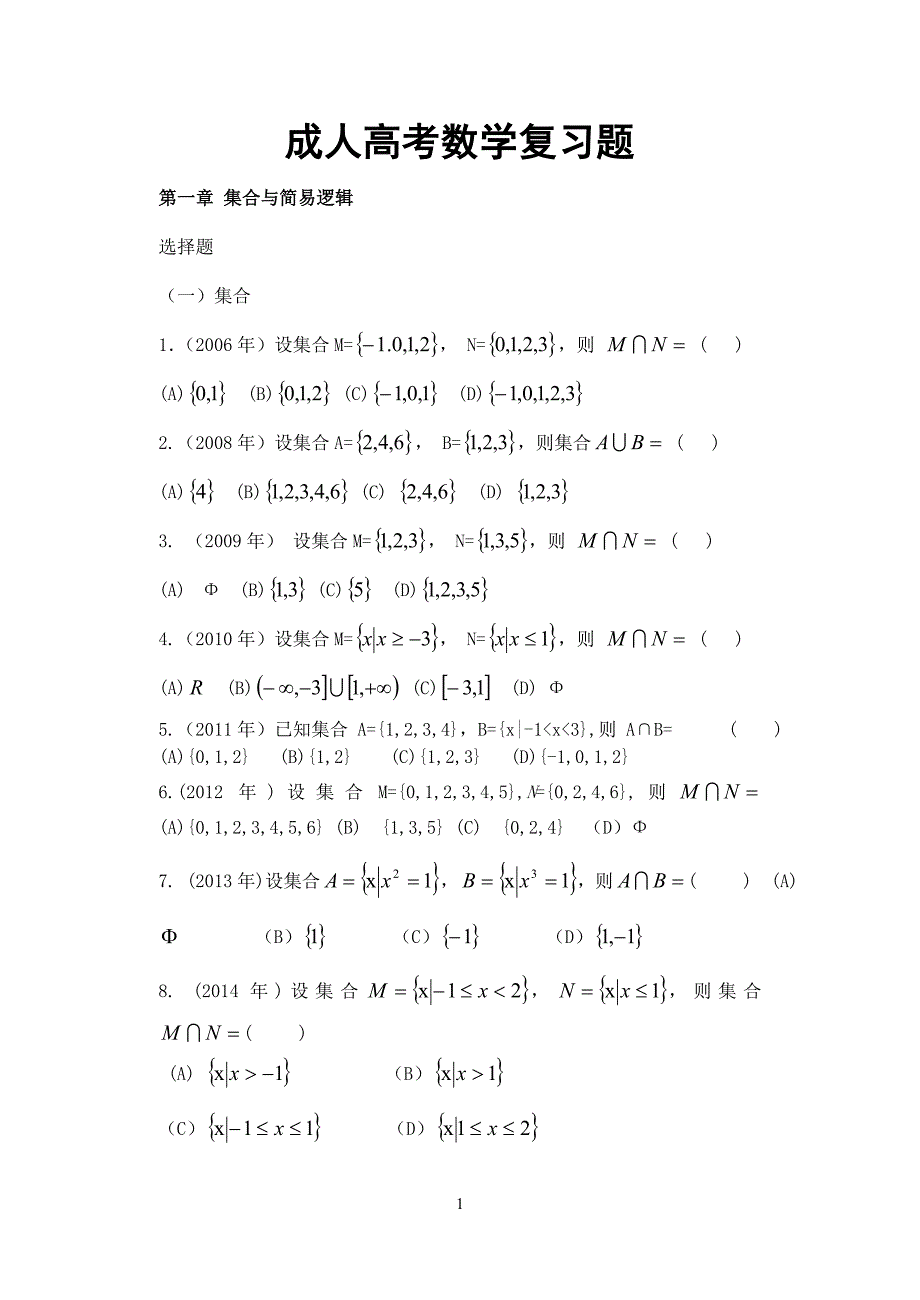 成人高考数学复习题
第一章 集合与简易逻辑
选择题
（一）集合
1.（2006年）设集合M={−1.0,1,2}， N={0,1,2,3}，则 M⋂N= (  )
(A){0,1} (B){0,1,2} (C){−1,0,1} (D){−1,0,1,2,3}
2.（2008年）设集合A={2,4,6}， B={1,2,3}，则集合A⋃B= (  )
(A){4} (B){1,2,3,4,6} (C) {2,4,6} (D) {1,2,3}
3. （2009年） 设集合M={1,2,3}， N={1,3,5}，则 M⋂N= (  )
(A) Φ (B){1,3} (C){5} (D){1,2,3,5}
4.（2010年）设集合M={x|x≥−3}， N={x|x≤1}，则 M⋂N= (  )
(A)R (B)(−∞,−3]⋃[1,+∞) (C)[−3,1] (D) Φ
5.（2011年）已知集合 A={1,2,3,4}，B={x|-1<x<3},则 A∩B= (  )
(A){0,1,2} (B){1,2} (C){1,2,3} (D){-1,0,1,2}
6.(2012 年）设集合 M={0,1,2,3,4,5},N={0,2,4,6}, 则 M⋂N=
(A){0,1,2,3,4,5,6} (B) {1,3,5} (C) {0,2,4} （D）Φ
7. (2013年)设集合A={x|x²=1}，B={x|x³=1}，则A⋂B=(  ) (A)
Φ （B）{1} （C）{−1} （D）{1,−1}
8. (2014 年)设集合M={x|−1≤x<2}，N={x|x≤1}，则集合
M⋂N=(  )
(A) {x|x>−1} （B）{x|x>1}
（C）{x|−1≤x≤1} （D）{x|1≤x≤2}
1